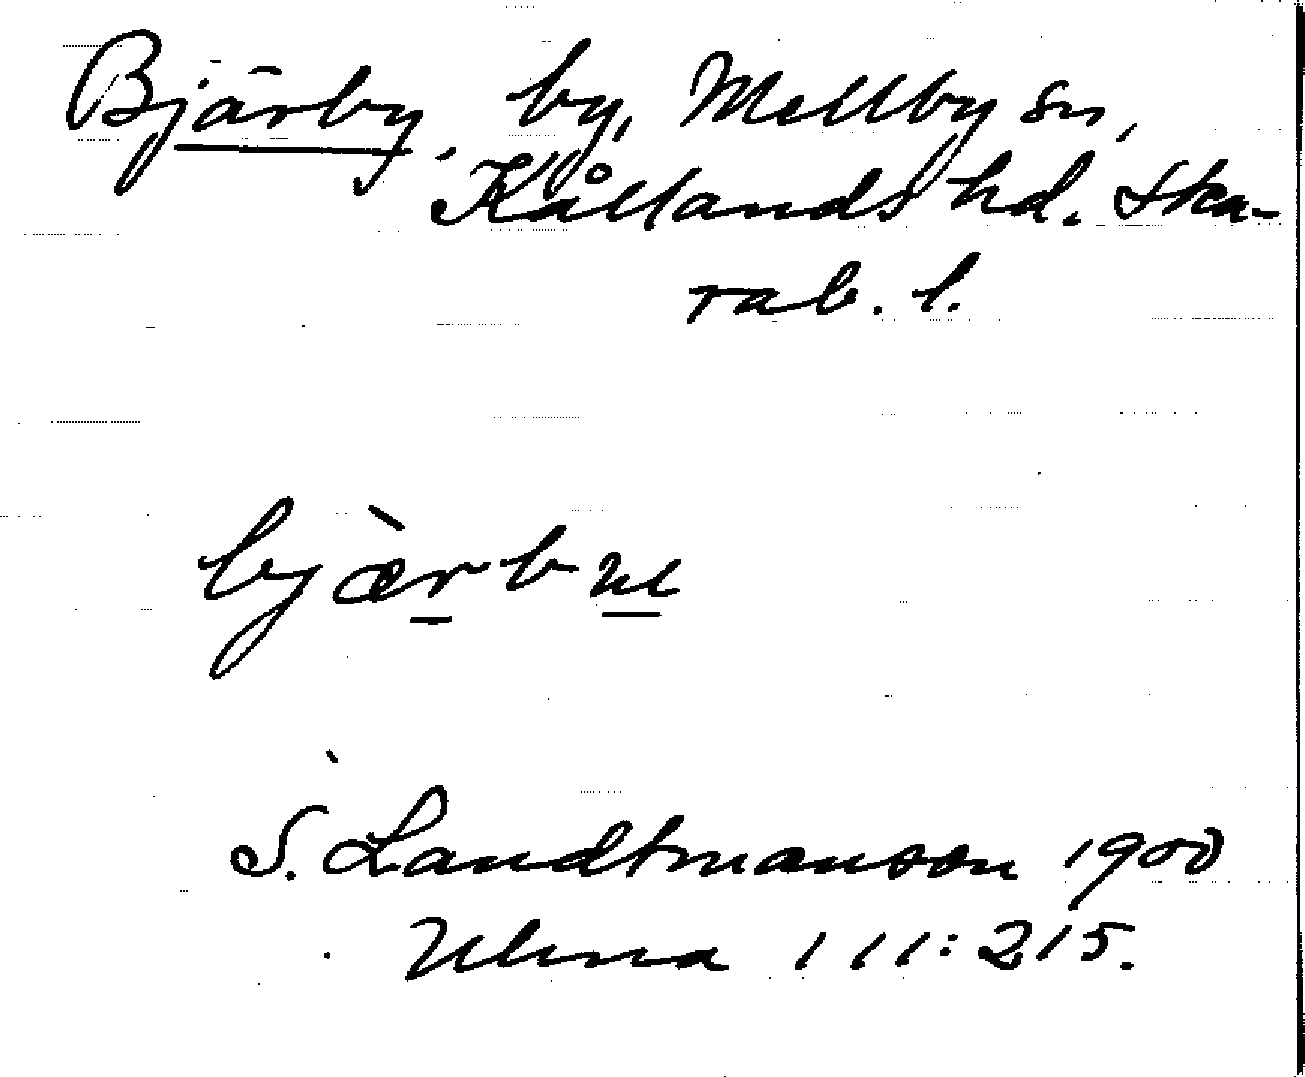 Bjärby, by, Mellby sn,
Kållands hd. Ska-
rab. l.
bjæ̀rb
S. Landtmanson 1900
Ulma 111:215.